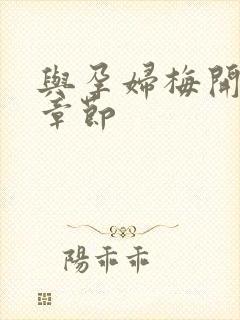 與孕婦梅開
章節
陽乖乖